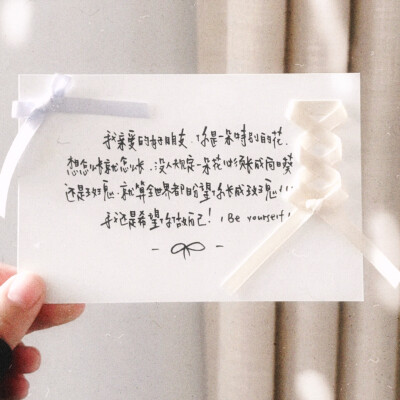 我亲爱的好朋友，你是一朵特别的花，
想怎么长就怎么长，没人规定一朵花必须长成向日葵
还是玫瑰，就算全世界都盼望你长成玫瑰，
我还是希望你做自己！（Be yourself）